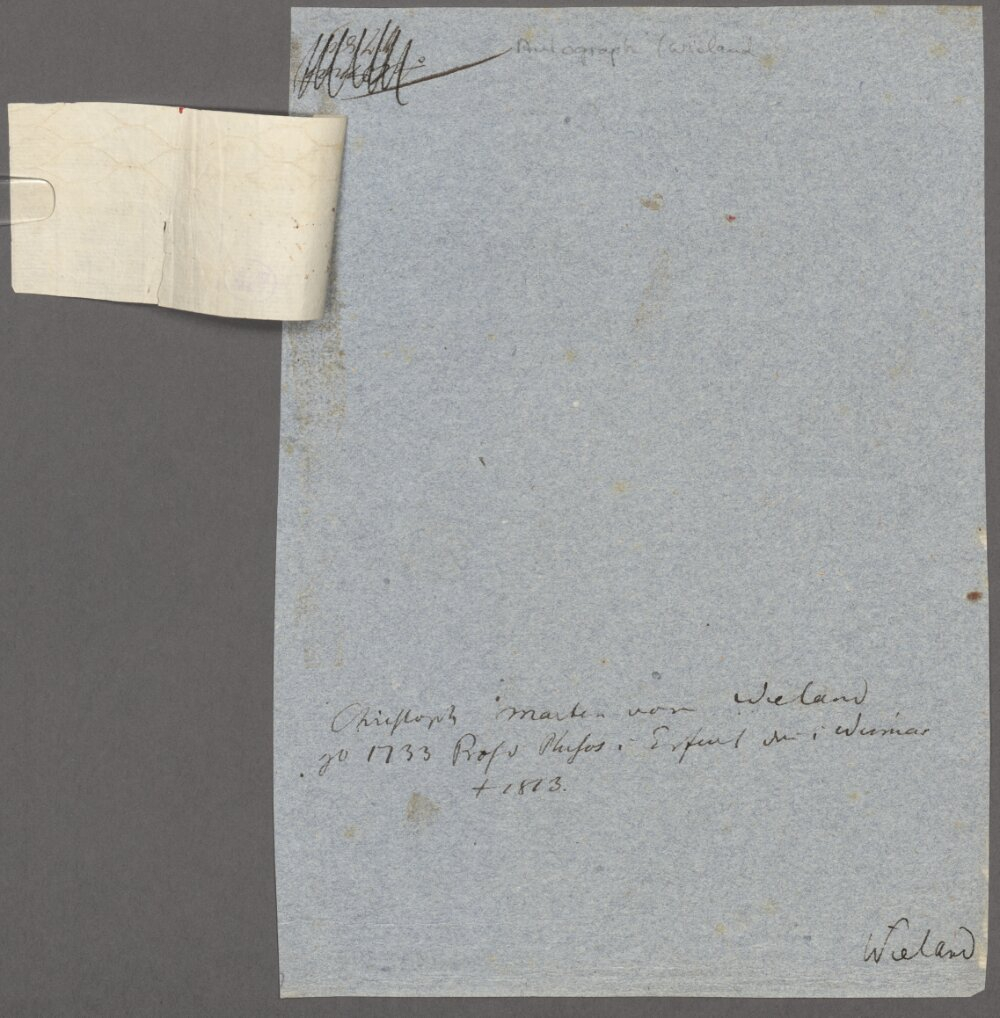 Autograph (Wieland
Christoph Martin von Wieland
gb 1733 Prof. d Philos. i Erfurt i Weimar
+ 1813.
Wieland